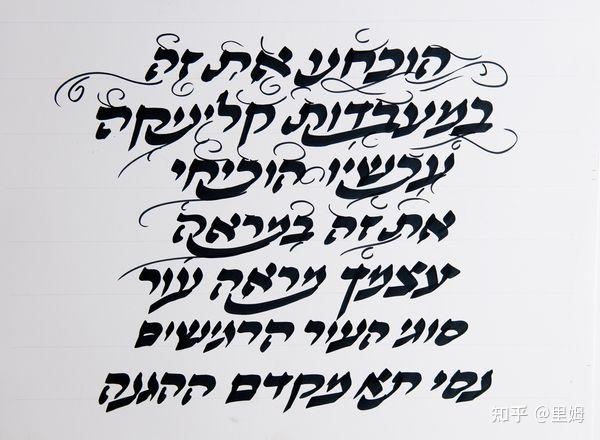 הוכחנו את זה
במעבדות קליניקה
עכשיו הוכיחי
את זה במראה
עצמך מראה עור
סוגי העור הרגישים
נסי תא מקדם ההגנה
知乎 @里姆